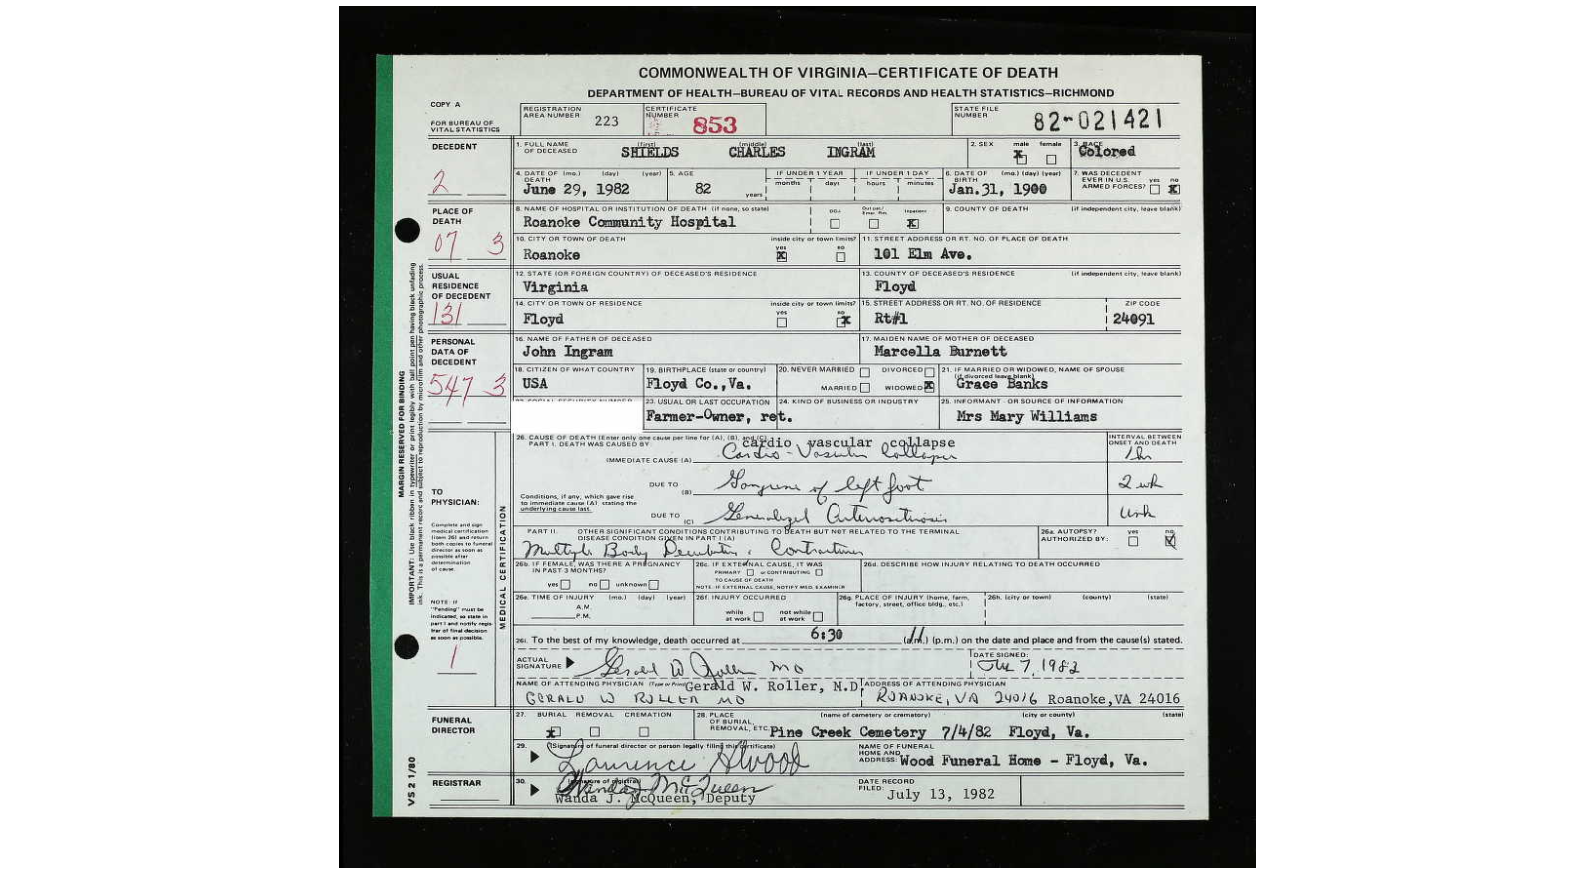 COMMONWEALTH OF VIRGINIA—CERTIFICATE OF DEATH
DEPARTMENT OF HEALTH—BUREAU OF VITAL RECORDS AND HEALTH STATISTICS—RICHMOND
COPY A
FOR BUREAU OF VITAL STATISTICS
REGISTRATION AREA NUMBER 223
CERTIFICATE NUMBER 853
STATE FILE NUMBER 82-021421
DECEDENT
1. FULL NAME OF DECEASED (first) (middle) (last) SHIELDS CHARLES INGRAM
2. SEX male X female
3. RACE Colored
2
4. DATE OF DEATH (mo.) (day) (year) June 29, 1982
5. AGE 82 years
IF UNDER 1 YEAR months days
IF UNDER 1 DAY hours minutes
6. DATE OF BIRTH (mo.) (day) (year) Jan.31, 1900
7. WAS DECEDENT EVER IN U.S. ARMED FORCES? yes no X
PLACE OF DEATH
07 3
8. NAME OF HOSPITAL OR INSTITUTION OF DEATH (if none, so state) Roanoke Community Hospital
DOA Out pat./ Emer. Rm. Inpatient X
9. COUNTY OF DEATH (if independent city, leave blank)
10. CITY OR TOWN OF DEATH Roanoke
inside city or town limits? yes X no
11. STREET ADDRESS OR RT. NO. OF PLACE OF DEATH 101 Elm Ave.
USUAL RESIDENCE OF DECEDENT
131
12. STATE (OR FOREIGN COUNTRY) OF DECEASED'S RESIDENCE Virginia
13. COUNTY OF DECEASED'S RESIDENCE (if independent city, leave blank) Floyd
14. CITY OR TOWN OF RESIDENCE Floyd
inside city or town limits? yes no X
15. STREET ADDRESS OR RT. NO. OF RESIDENCE Rt#1
ZIP CODE 24091
PERSONAL DATA OF DECEDENT
547 3
16. NAME OF FATHER OF DECEASED John Ingram
17. MAIDEN NAME OF MOTHER OF DECEASED Marcella Burnett
18. CITIZEN OF WHAT COUNTRY USA
19. BIRTHPLACE (state or country) Floyd Co.,Va.
20. NEVER MARRIED DIVORCED MARRIED WIDOWED X
21. IF MARRIED OR WIDOWED, NAME OF SPOUSE (if divorced leave blank) Grace Banks
23. USUAL OR LAST OCCUPATION Farmer-Owner, ret.
24. KIND OF BUSINESS OR INDUSTRY
25. INFORMANT - OR SOURCE OF INFORMATION Mrs Mary Williams
MARGIN RESERVED FOR BINDING
IMPORTANT: Use black ribbon in typewriter or print legibly with ball point pen having black unfading ink. This is a permanent record and subject to reproduction by microfilm and other photographic process.
TO PHYSICIAN:
Complete and sign medical certification (item 26) and return both copies to funeral director as soon as possible after determination of cause.
NOTE: IF "Pending" must be indicated, so state in part I and notify registrar of final decision as soon as possible.
1
MEDICAL CERTIFICATION
26. CAUSE OF DEATH (Enter only one cause per line for (A), (B), and (C)
PART I. DEATH WAS CAUSED BY: cardio vascular collapse
IMMEDIATE CAUSE (A) Cardio-Vascular Collapse
INTERVAL BETWEEN ONSET AND DEATH 1 hr
DUE TO (B) Gangrene of left foot 2 wk
Conditions, if any, which gave rise to immediate cause (A) stating the underlying cause last.
DUE TO (C) Generalized Arteriosclerosis unk
PART II. OTHER SIGNIFICANT CONDITIONS CONTRIBUTING TO DEATH BUT NOT RELATED TO THE TERMINAL DISEASE CONDITION GIVEN IN PART I (A)
Multiple Body Decubiti & Contractures
26a. AUTOPSY? AUTHORIZED BY: yes no
26b. IF FEMALE, WAS THERE A PREGNANCY IN PAST 3 MONTHS? yes no unknown
26c. IF EXTERNAL CAUSE, IT WAS PRIMARY or CONTRIBUTING TO CAUSE OF DEATH
NOTE: IF EXTERNAL CAUSE, NOTIFY MED. EXAMINER
26d. DESCRIBE HOW INJURY RELATING TO DEATH OCCURRED
26e. TIME OF INJURY (mo.) (day) (year) A.M. P.M.
26f. INJURY OCCURRED while at work not while at work
26g. PLACE OF INJURY (home, farm, factory, street, office bldg., etc.)
26h. (city or town) (county) (state)
26i. To the best of my knowledge, death occurred at 6:30 (a.m.) (p.m.) on the date and place and from the cause(s) stated.
ACTUAL SIGNATURE Gerald W Roller MD
DATE SIGNED: 7, 1982
NAME OF ATTENDING PHYSICIAN (Type or Print) Gerald W. Roller, M.D.
GERALD W ROLLER MD
ADDRESS OF ATTENDING PHYSICIAN ROANOKE, VA 24016 Roanoke,VA 24016
FUNERAL DIRECTOR
27. BURIAL X REMOVAL CREMATION
28. PLACE OF BURIAL, REMOVAL, ETC. (name of cemetery or crematory) (city or county) (state)
Pine Creek Cemetery 7/4/82 Floyd, Va.
29. (Signature of funeral director or person legally filing this certificate) Laurence A Wood
NAME OF FUNERAL HOME AND ADDRESS: Wood Funeral Home - Floyd, Va.
REGISTRAR
30. (signature of registrar) Wanda J. McQueen
Wanda J. McQueen, Deputy
DATE RECORD FILED: July 13, 1982
VS 2 1/80